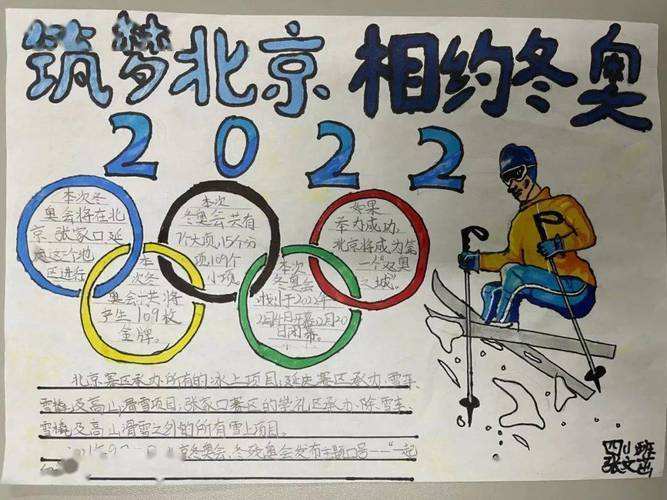 筑梦北京 相约冬奥
2022
本次冬
奥会将在北
京张家口延
庆这三个地
区进行
本
次冬
奥会共将
产生109枚
金牌。
本次
冬奥会共有
7个大项,15个分
项,109个
小项
本次
冬奥会
将于2022年
2月4日开幕2月20
日闭幕。
如果
举办成功,
北京将成为第
一个"双奥
之城"。
北京赛区承办所有的冰上项目;延庆赛区承办,雪车、
雪橇及高山滑雪项目;张家口赛区的崇礼区承办,除雪车、
雪橇及高山滑雪之外的所有雪上项目。
冬奥会、冬残奥会发布主题口号——"一起
四(1)班
张文